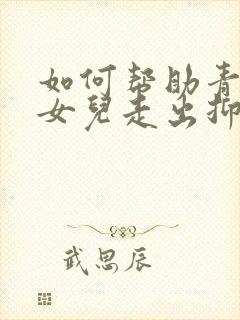 如何帮助青
女兒走出抑
武思辰